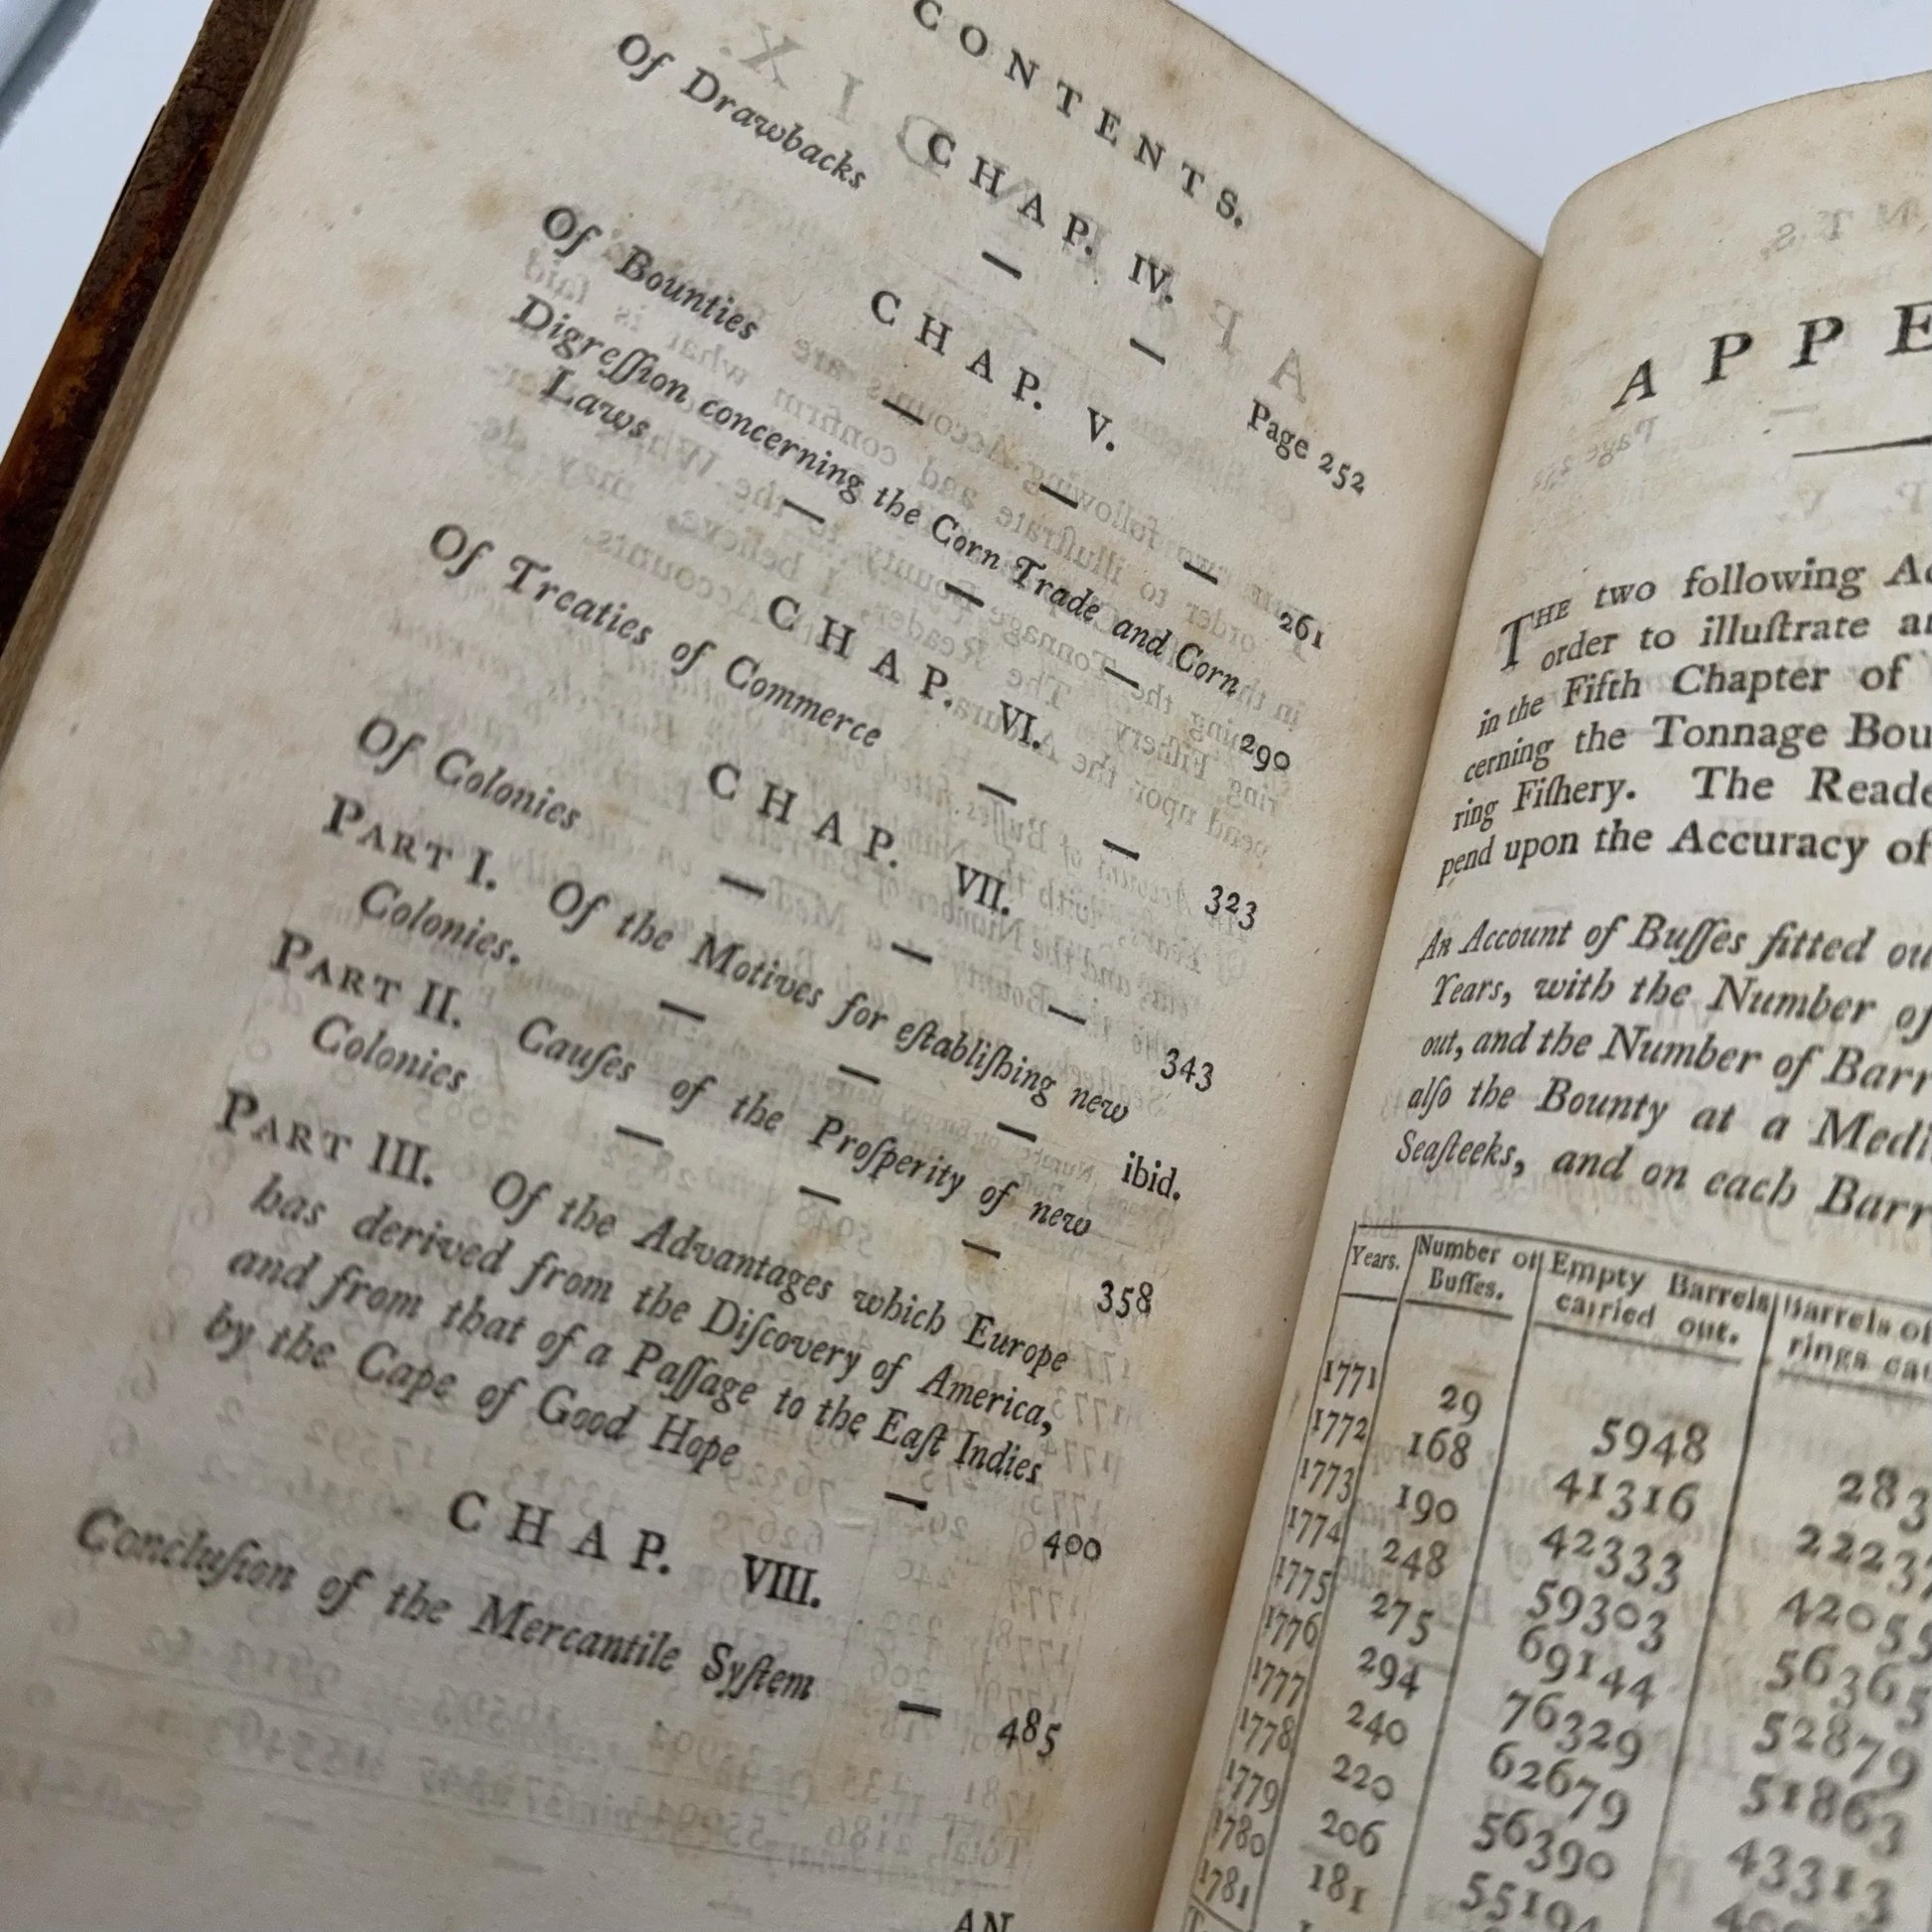 CONTENTS.
CHAP. IV.
Of Drawbacks — — Page 252
CHAP. V.
Of Bounties — — — 261
Digreſſion concerning the Corn Trade and Corn
Laws — — — 290
CHAP. VI.
Of Treaties of Commerce — — 323
CHAP. VII.
Of Colonies — — — 343
PART I. Of the Motives for eſtabliſhing new
Colonies. — — — ibid.
PART II. Cauſes of the Proſperity of new
Colonies — — — 358
PART III. Of the Advantages which Europe
has derived from the Diſcovery of America,
and from that of a Paſſage to the Eaſt Indies
by the Cape of Good Hope — 400
CHAP. VIII.
Concluſion of the Mercantile Syſtem — 485
AN
APPE
THE two following Ac
order to illuſtrate an
in the Fifth Chapter of
cerning the Tonnage Bou
ring Fiſhery. The Reade
pend upon the Accuracy of
AN Account of Buſſes fitted ou
Years, with the Number of
out, and the Number of Barr
alſo the Bounty at a Medi
Seaſteeks, and on each Barr
Years. Number of Buſſes. Empty Barrels carried out. Barrels of rings ca
1771 29 5948 283
1772 168 41316 2223
1773 190 42333 42055
1774 248 59303 56365
1775 275 69144 52879
1776 294 76329 51863
1777 240 62679 43313
1778 220 56390
1779 206 55194
1780 181
1781